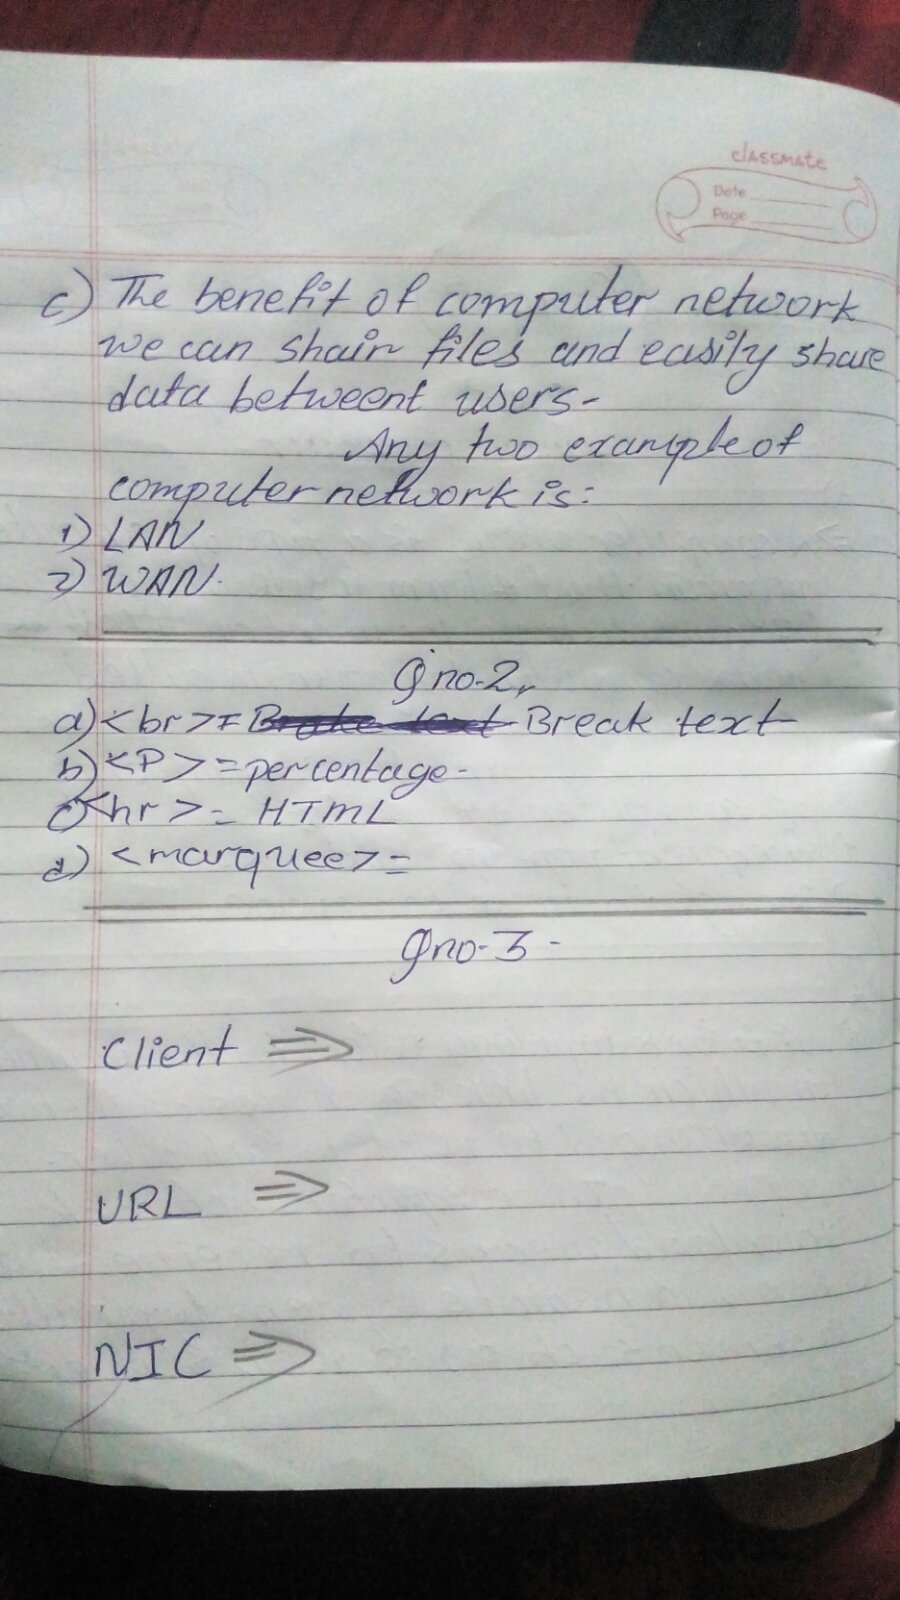 classmate
Date
Page
c) The benefit of computer network
we can shair files and easily share
data betweent users-
Any two example of
computer network is:
1) LAN
2) WAN.
Qno-2,
a) <br> = Break text
b) <P> = percentage-
c) <hr> = HTML
d) <marquee> =
Qno-3-
Client ⇒
URL ⇒
NIC ⇒